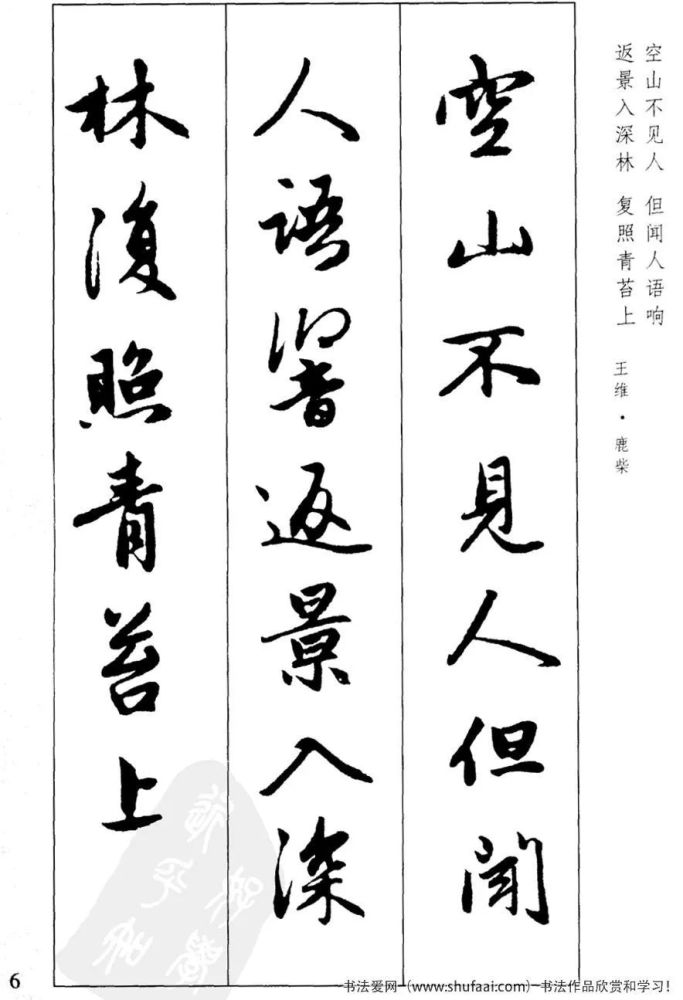 空山不见人 但闻人语响
返景入深林 复照青苔上
王维·鹿柴
空山不見人但聞
人語響返景入深
林復照青苔上
6
书法爱网（www.shufaai.com）书法作品欣赏和学习！